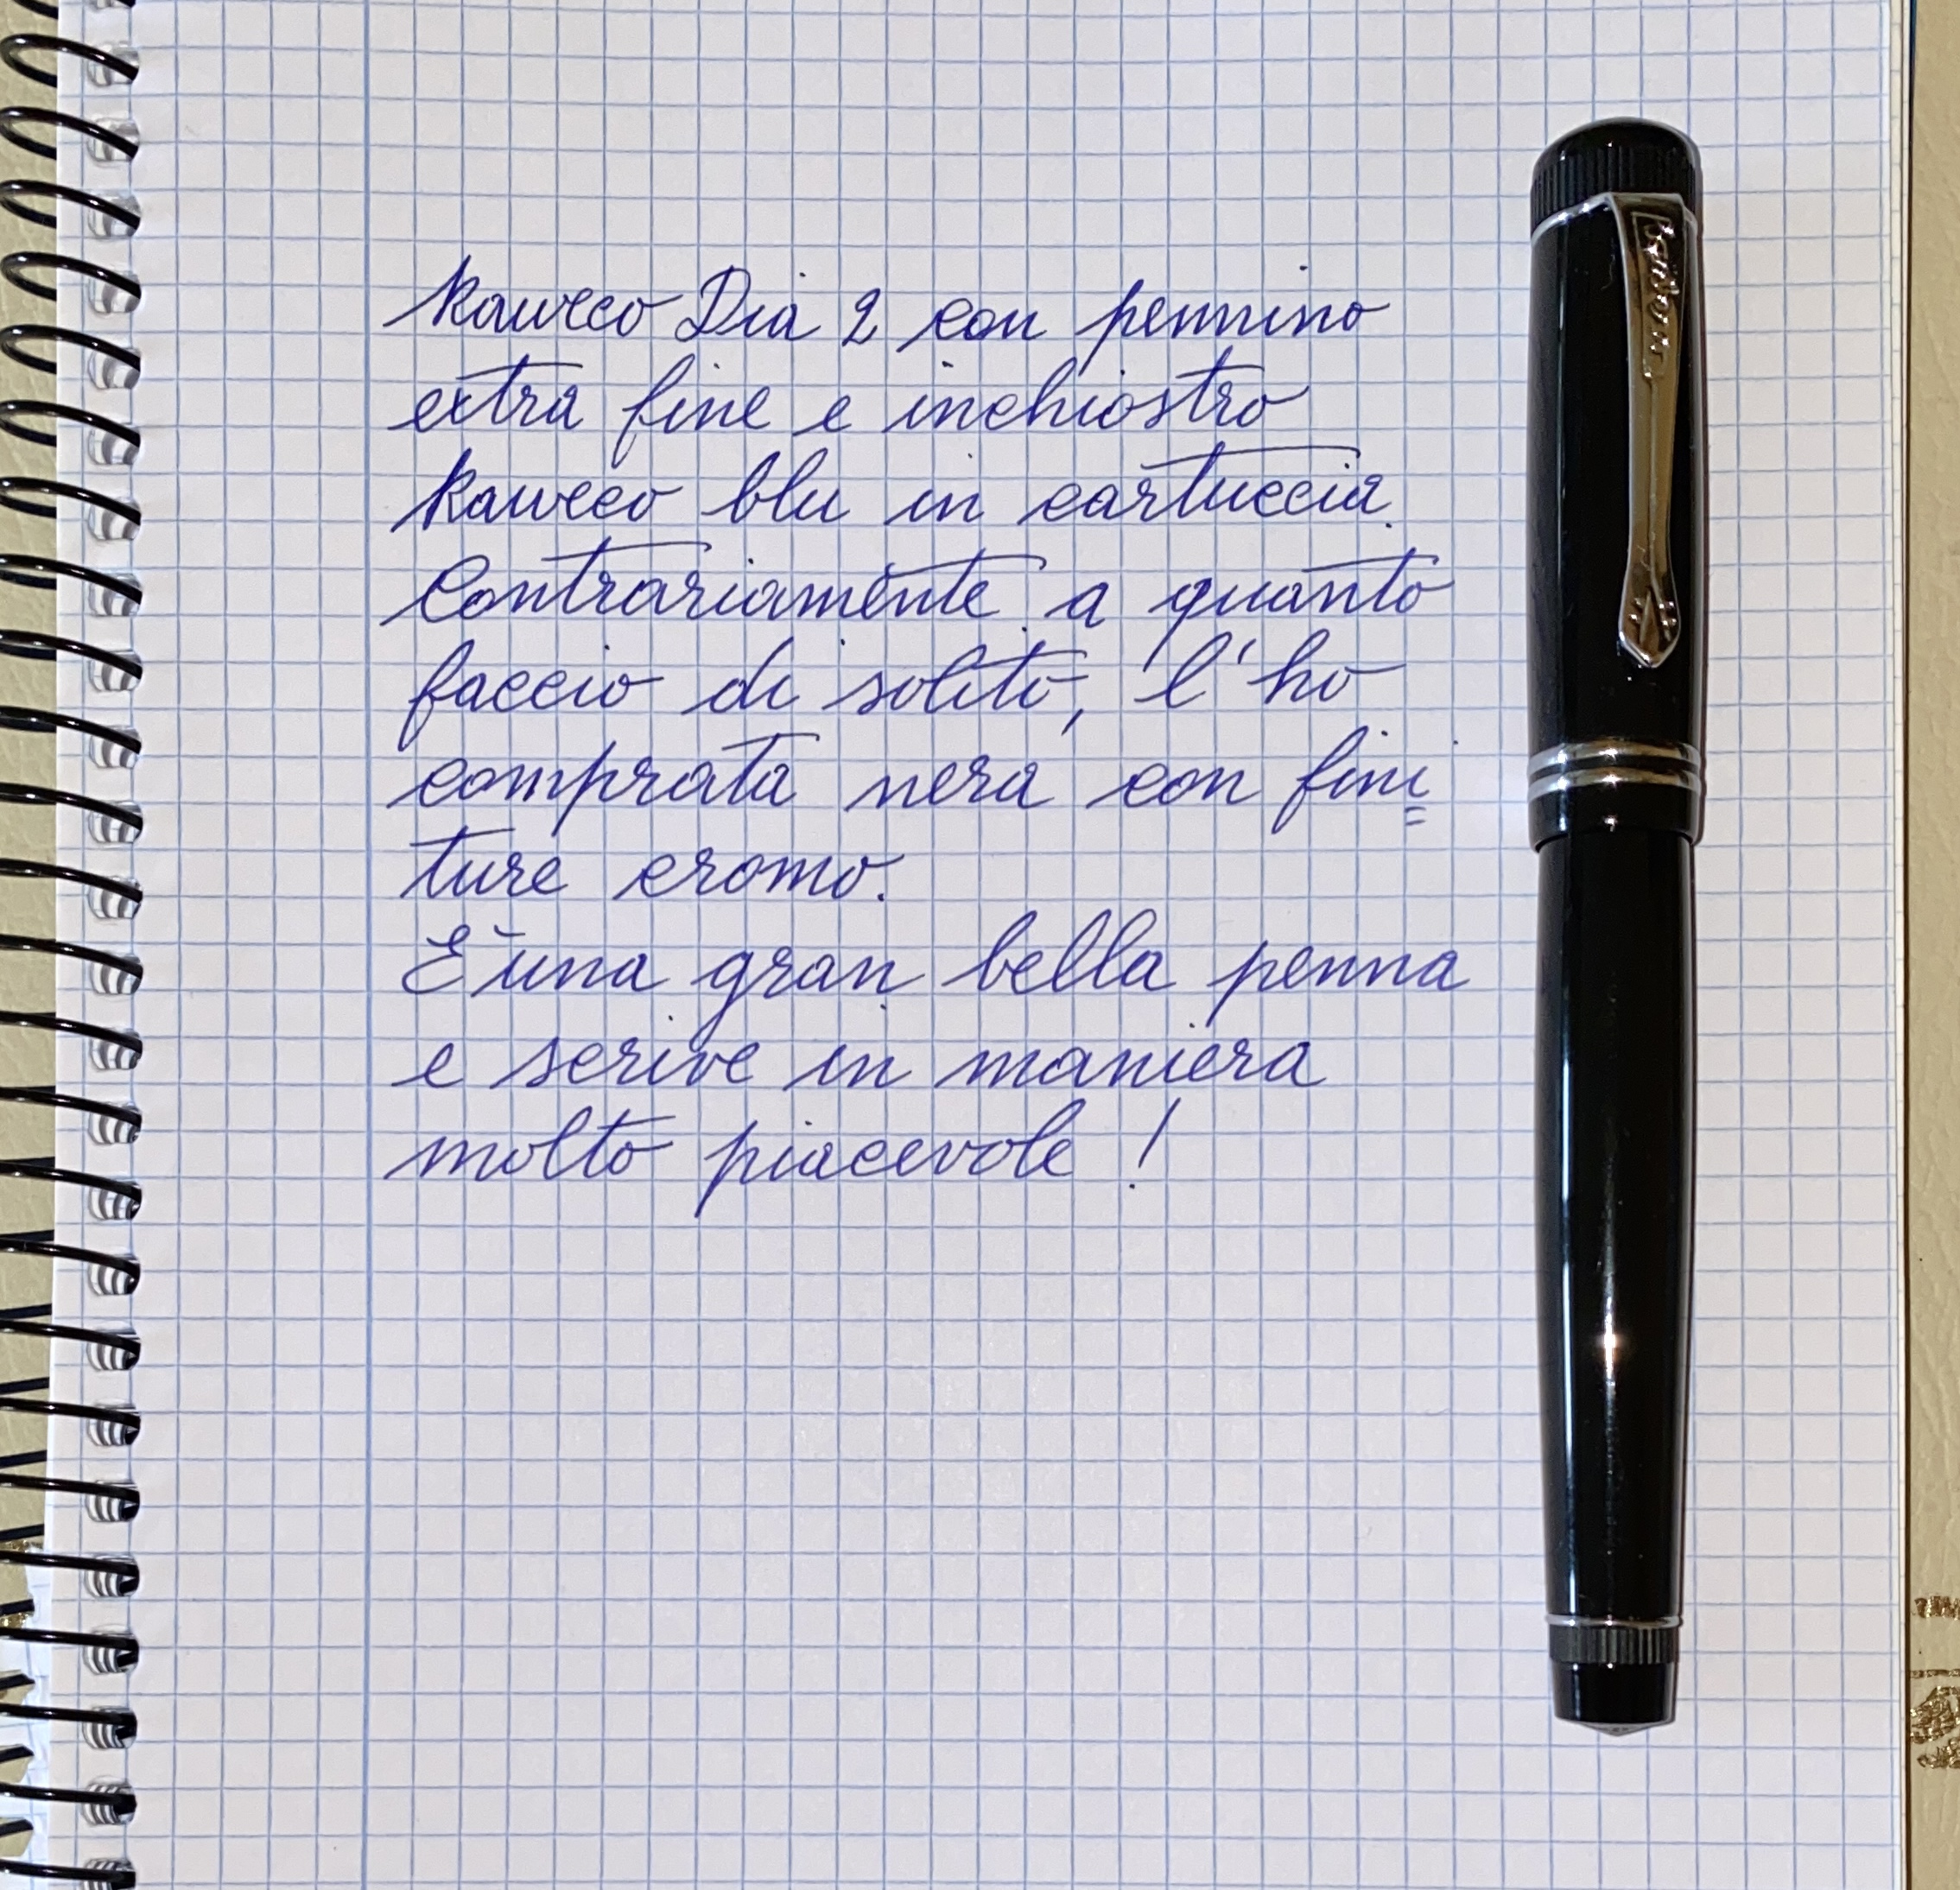 Kaweco Dia 2 con pennino
extra fine e inchiostro
Kaweco blu in cartuccia.
Contrariamente a quanto
faccio di solito, l'ho
comprata nera con fini=
ture cromo.
È una gran bella penna
e scrive in maniera
molto piacevole !